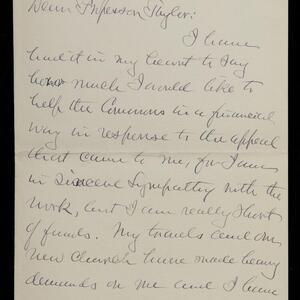 Dear Professor Taylor:
I have
had it in my heart to say
how much I would like to
help the Commons in a financial
way in response to the appeal
that came to me, for I am
in sincere sympathy with the
work, but I am really short
of funds. My travels and our
new church have made heavy
demands on me and I have